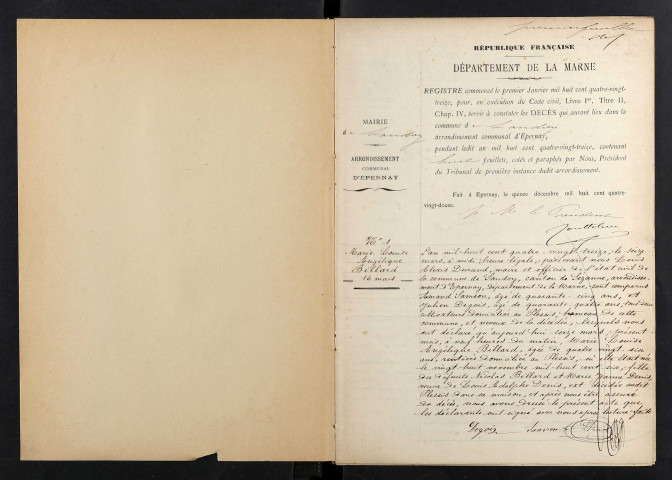 RÉPUBLIQUE FRANÇAISE
DÉPARTEMENT DE LA MARNE
REGISTRE commencé le premier Janvier mil huit cent quatre-vingt-
treize, pour, en exécution du Code civil, Livre Ier, Titre II,
Chap. IV, servir à constater les DÉCÈS qui auront lieu dans la
commune d
arrondissement communal d'Epernay,
pendant ledit an mil huit cent quatre-vingt-treize, contenant
feuillets, cotés et paraphés par Nous, Président
du Tribunal de première instance dudit arrondissement.
Fait à Epernay, le quinze décembre mil huit cent quatre-
vingt-douze.
MAIRIE
ARRONDISSEMENT
COMMUNAL
D'ÉPERNAY
N° 1
Marie Louise
Angélique
Billard
16 mars
L'an mil huit cent quatre-vingt-treize, le seize
mars, à midi, heure légale, par devant nous Louis
Alexis Durand, maire et officier de l'état civil de
la commune de Soudoy, canton de Sézanne, arrondisse-
ment d'Epernay, département de la Marne, sont comparus
Armand Samson, âgé de quarante-cinq ans, et
Julien Degois, âgé de quarante-quatre ans, tous deux
cultivateurs domiciliés au Plessis, hameau de cette
commune, et neveux de la décédée, lesquels nous
ont déclaré qu'aujourd'hui seize mars, présent
mois, à neuf heures du matin, Marie Louise
Angélique Billard, âgée de quatre-vingt-six
ans, rentière domiciliée au Plessis, où elle était née
le vingt huit novembre mil huit cent six, fille
des défunts Nicolas Billard et Marie Jeanne Denis,
veuve de Louis Adolphe Denis, est décédée audit
Plessis dans sa maison, et après nous être assuré
du décès, nous avons dressé le présent acte que
les déclarants ont signé avec nous après lecture faite
Degois Samson